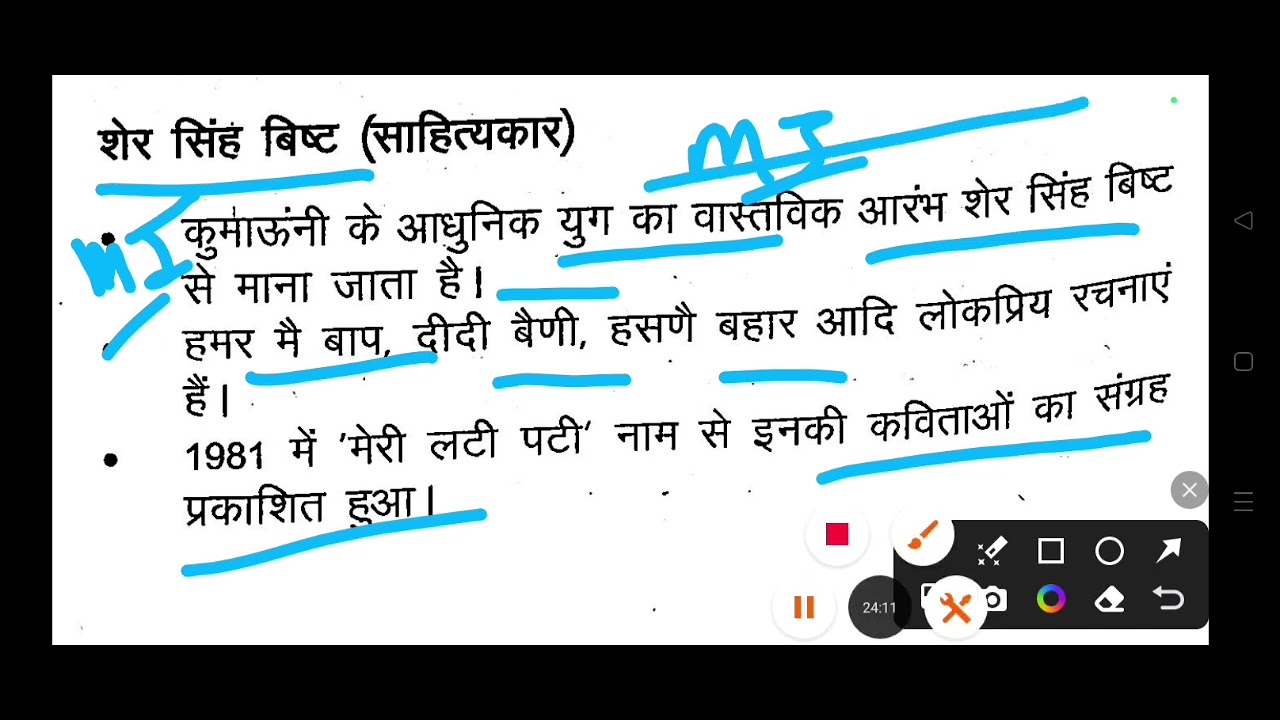 शेर सिंह बिष्ट (साहित्यकार)
MI
MI
• कुमाऊंनी के आधुनिक युग का वास्तविक आरंभ शेर सिंह बिष्ट
से माना जाता है।
हमर मै बाप, दीदी बैणी, हसणै बहार आदि लोकप्रिय रचनाएं
हैं।
• 1981 में 'मेरी लटी पटी' नाम से इनकी कविताओं का संग्रह
प्रकाशित हुआ।
24:11